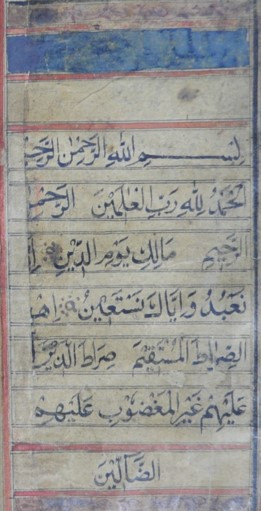 بِسْمِ اللّٰهِ الرَّحْمٰنِ الرَّحِ
اَلْحَمْدُ لِلّٰهِ رَبِّ الْعٰلَمِيْنَ الرَّحْمٰنِ
الرَّحِيْمِ مَالِكِ يَوْمِ الدِّيْنِ اِ
نَعْبُدُ وَاِيَّاكَ نَسْتَعِيْنُ اِهْدِ
الصِّرَاطَ الْمُسْتَقِيْمَ صِرَاطَ الَّذِيْنَ
عَلَيْهِمْ غَيْرِ الْمَغْضُوْبِ عَلَيْهِمْ
الضَّآلِّيْنَ